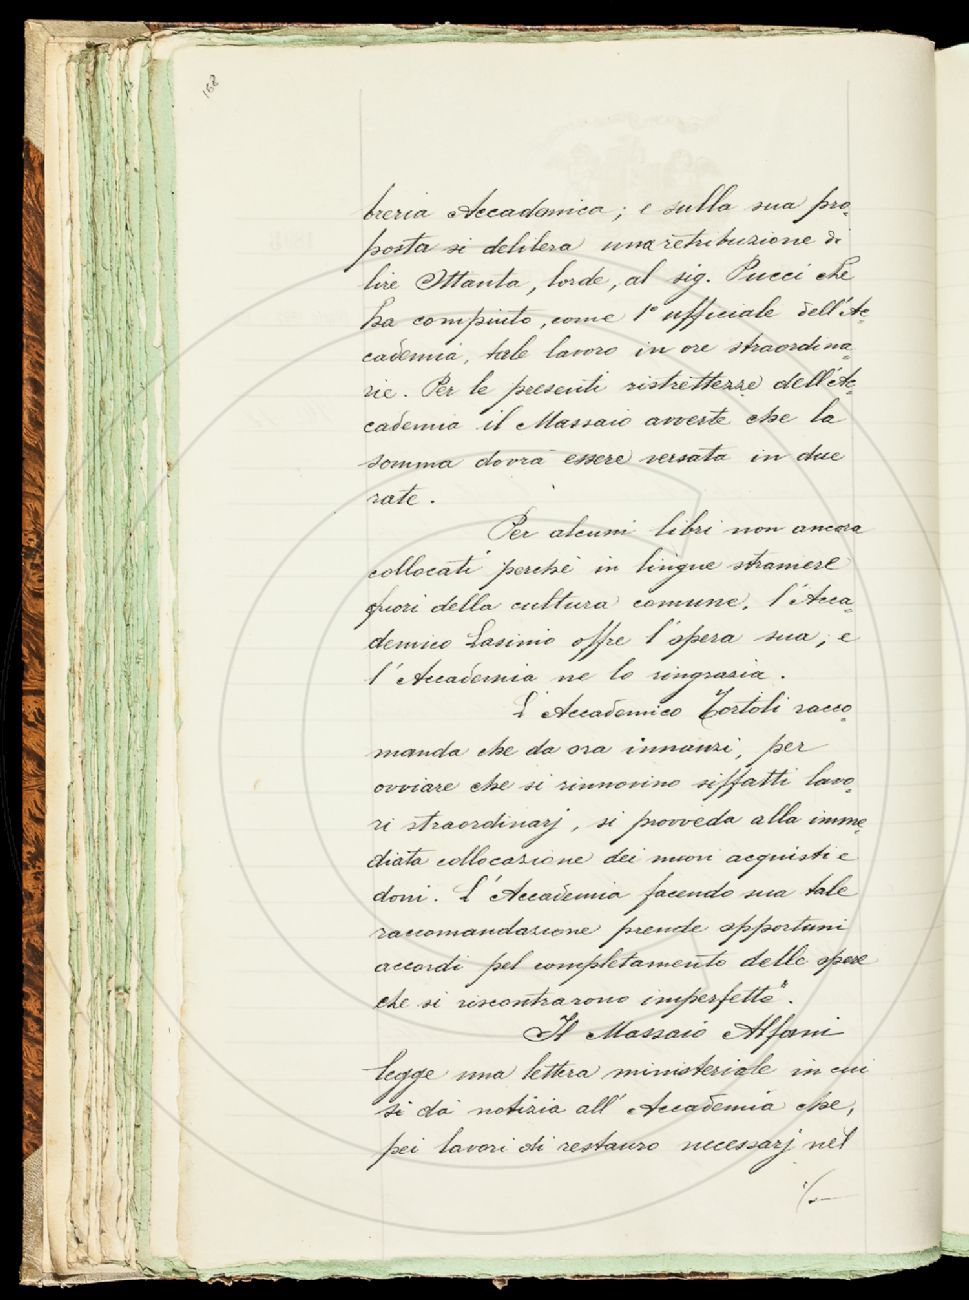 168
breria Accademica; e sulla sua pro-
posta si delibera una retribuzione di
lire Ottanta, lorde, al sig. Pucci che
ha compiuto, come 1° ufficiale dell'Ac-
cademia, tale lavoro in ore straordina-
rie. Per le presenti ristrettezze dell'Ac-
cademia il Massaio avverte che la
somma dovrà essere versata in due
rate.
Per alcuni libri non ancora
collocati perché in lingue straniere
fuori della cultura comune, l'Acca-
demico Lasinio offre l'opera sua, e
l'Accademia ne lo ringrazia.
L'Accademico Tortoli racco-
manda che da ora innanzi, per
ovviare che si rinnovino siffatti lavo-
ri straordinarj, si provveda alla imme-
diata collocazione dei nuovi acquisti e
doni. L'Accademia facendo sua tale
raccomandazione prende opportuni
accordi pel completamento delle opere
che si riscontrarono imperfette".
Il Massaio Alfani
legge una lettera ministeriale in cui
si dà notizia all'Accademia che,
pei lavori di restauro necessarj nel
./.